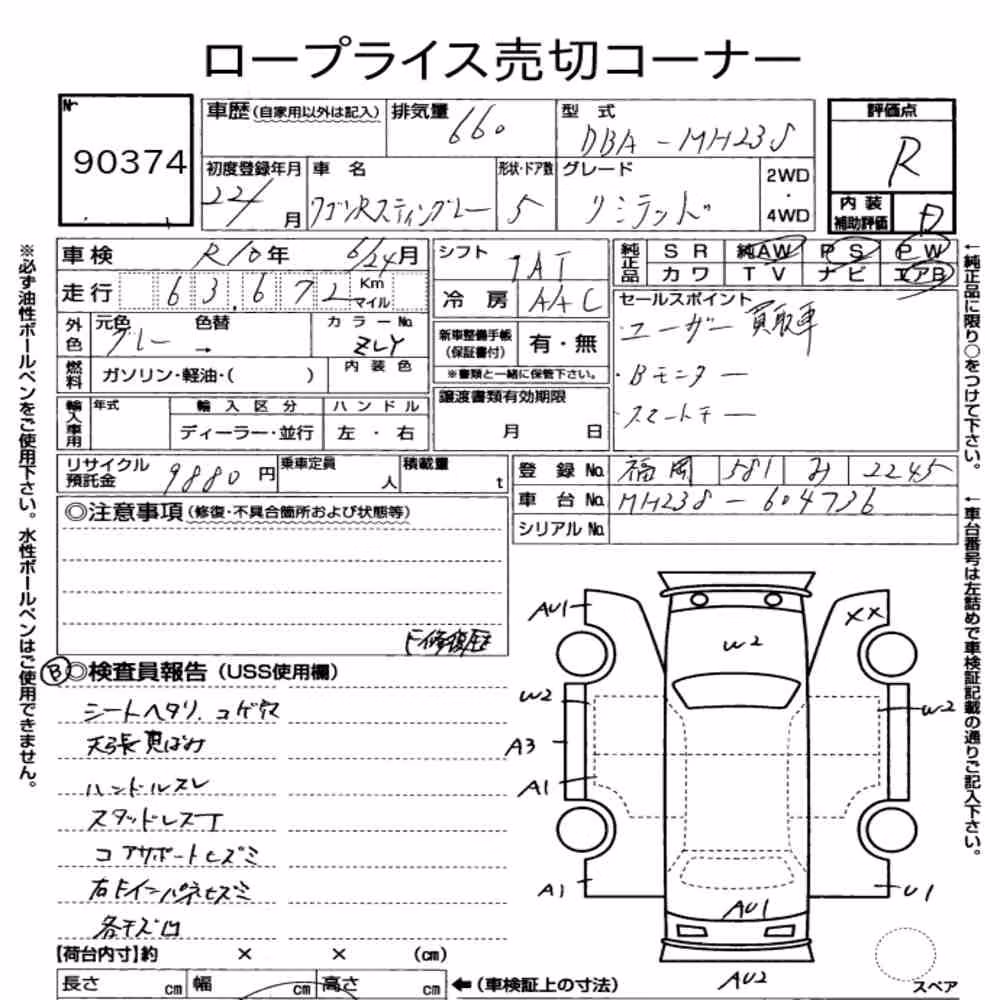 ロープライス売切コーナー
№ 90374
車歴(自家用以外は記入) 排気量 660 型式 DBA-MH23S
初度登録年月 22/ 月 車名 ワゴンRスティングレー 形状・ドア数 5 グレード リミテッド 2WD・4WD
評価点 R
内装補助評価 D
車検 R10年 6/24月
走行 63,672 Km マイル
シフト 7AT
冷房 AAC
純正品 SR 純AW PS PW
カワ TV ナビ エアB
外色 元色 グレー 色替 → カラーNo. ZLY
燃料 ガソリン・軽油・( ) 内装色
新車整備手帳(保証書付) 有・無
※書類と一緒に保管下さい。
セールスポイント
・ユーザー買取車
・Bモニター
・スマートキー
輸入車用 年式 輸入区分 ハンドル
ディーラー・並行 左・右
譲渡書類有効期限
月 日
リサイクル預託金 9880円 乗車定員 人 積載量 t
登録No. 福岡 581 み 2245
車台No. MH23S-604736
シリアルNo.
◎注意事項(修復・不具合箇所および状態等)
修復歴
B ◎検査員報告(USS使用欄)
シートヘタリ.コゲ穴
天張黄ばみ
ハンドルスレ
スタッドレスT
コアサポートヒズミ
右Fインパネヒズミ
各キズ凹
【荷台内寸】約 × × (cm)
長さ cm 幅 cm 高さ cm ←(車検証上の寸法)
AU1 XX
W2
W2 W2
A3
A1
A1 U1
AU1
AU2
スペア
※必ず油性ボールペンをご使用下さい。水性ボールペンはご使用できません。
←純正品に限り○をつけて下さい。
←車台番号は左詰めで車検証記載の通りご記入下さい。